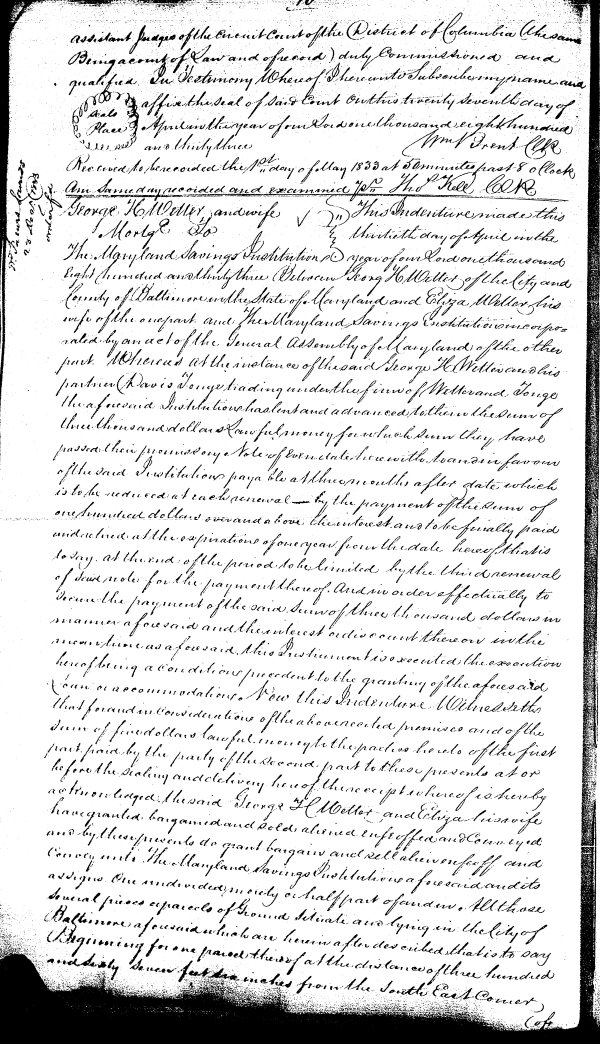 assistant Judges of the Circuit Court of the District of Columbia (the same
Being a court of Law and of record) duly Commissioned and
qualified In Testimony Whereof I hereunto Subscribe my name and
affix the seal of said Court on this twenty seventh day of
Seals Place
April in the year of our Lord one thousand eight hundred
and thirty three
Wm Brent Clk
Received to be recorded the 1st day of May 1833 at 5 minutes past 8 o Clock
Am Same day recorded and examined pr Thos Kell Clk
George H Wetter and wife
Mortge To
The Maryland Savings Institution
This Indenture made this
thirtieth day of April in the
year of our Lord one thousand
Eight hundred and thirty three Between Georg H Wetter of the City and
County of Baltimore in the State of Maryland and Eliza Wetter his
wife of the one part and The Maryland Savings Institution incorpo
rated by an act of the General Assembly of Maryland of the other
part Whereas at the instance of the said George H Wetter and his
partner Davis Tonge trading under the firm of Wetter and Tonge
the aforesaid Institution has lent and advanced to them the sum of
three thousand dollars Lawful money for which sum they have
passed their promissory Note of even date herewith to and in favour
of the said Institution payable at three months after date which
is to be reduced at each renewal — by the payment of the sum of
one hundred dollars over and above the interest and to be finally paid
and retired at the expiration of one year from the date hereof that is
to say at the end of the period to be limited by the third renewal
of said note for the payment thereof. And in order effectually to
secure the payment of the said sum of three thousand dollars in
manner aforesaid and the interest or discount thereon in the
mean time as aforesaid, this Instrument is executed the execution
hereof being a condition precedent to the granting of the aforesaid
Loan or accommodation. Now this Indenture Witnesseth
that for and in consideration of the above recited premises and of the
sum of five dollars lawful money to the parties hereto of the first
part, paid by the party of the second part to these presents at or
before the sealing and delivery hereof the receipt whereof is hereby
acknowledged, the said George H Wetter and Eliza his wife
have granted bargained and sold aliened enfeoffed and Conveyed
and by these presents do grant bargain and sell alien enfeoff and
Convey unto The Maryland Savings Institution aforesaid and its
assigns One undivided moiety or half part of and in All those
several pieces or parcels of Ground Situate and lying in the City of
Baltimore aforesaid which are herein after described that is to say
Beginning for one parcel thereof at the distance of three hundred
and sixty seven feet six inches from the South East Corner
of